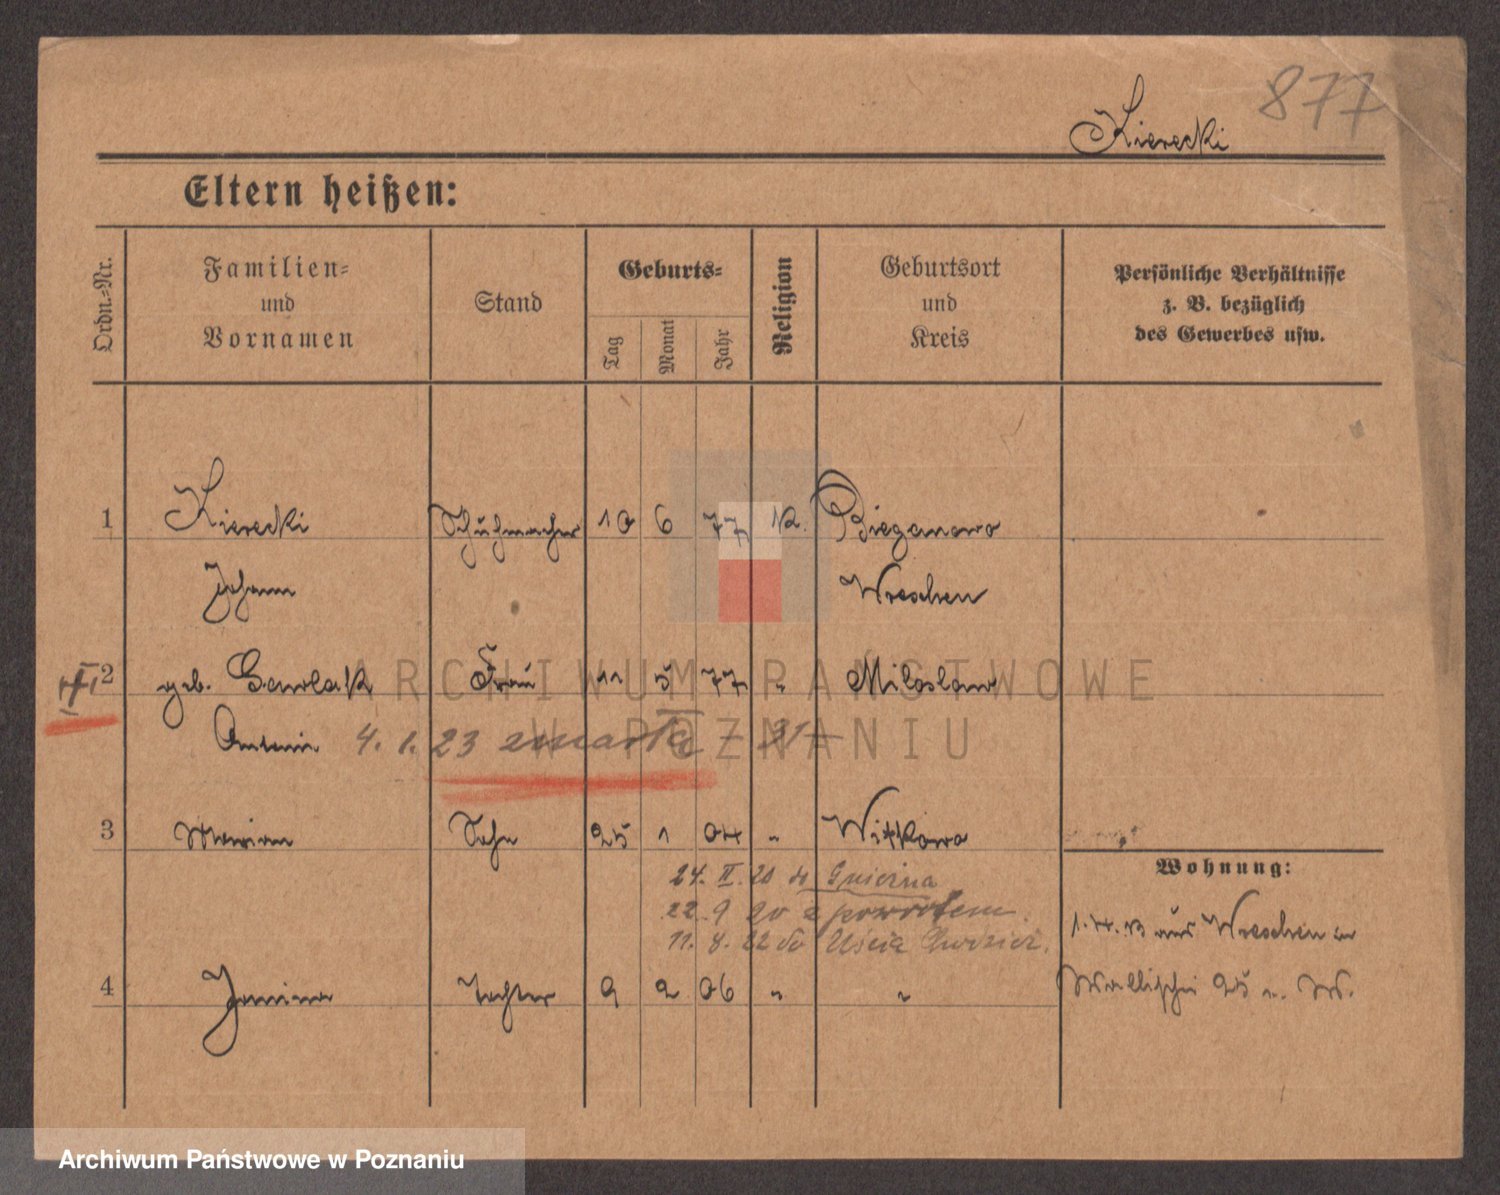 877
Kierecki
Eltern heißen:
Ordn.-Nr.
Familien-
und
Vornamen
Stand
Geburts-
Tag
Monat
Jahr
Religion
Geburtsort
und
Kreis
Persönliche Verhältnisse
z. B. bezüglich
des Gewerbes usw.
1 Kierecki Schuhmacher 10 6 77 k. Bieganowo
Johann Wreschen
2 geb. Gawlak Frau 11 5 77 " Miloslaw
4. 1. 23 zmarła
3 Marian Sohn 25 1 04 " Witkowo
24. II. 20 do Gniezna
22. 9 20 z powrotem.
11. 8. 22 do Uścia
4 Janina Tochter 9 2 06 " "
Wohnung:
1. 4. 13 aus Wreschen
Wallischei 25
ARCHIWUM PAŃSTWOWE
W POZNANIU
Archiwum Państwowe w Poznaniu